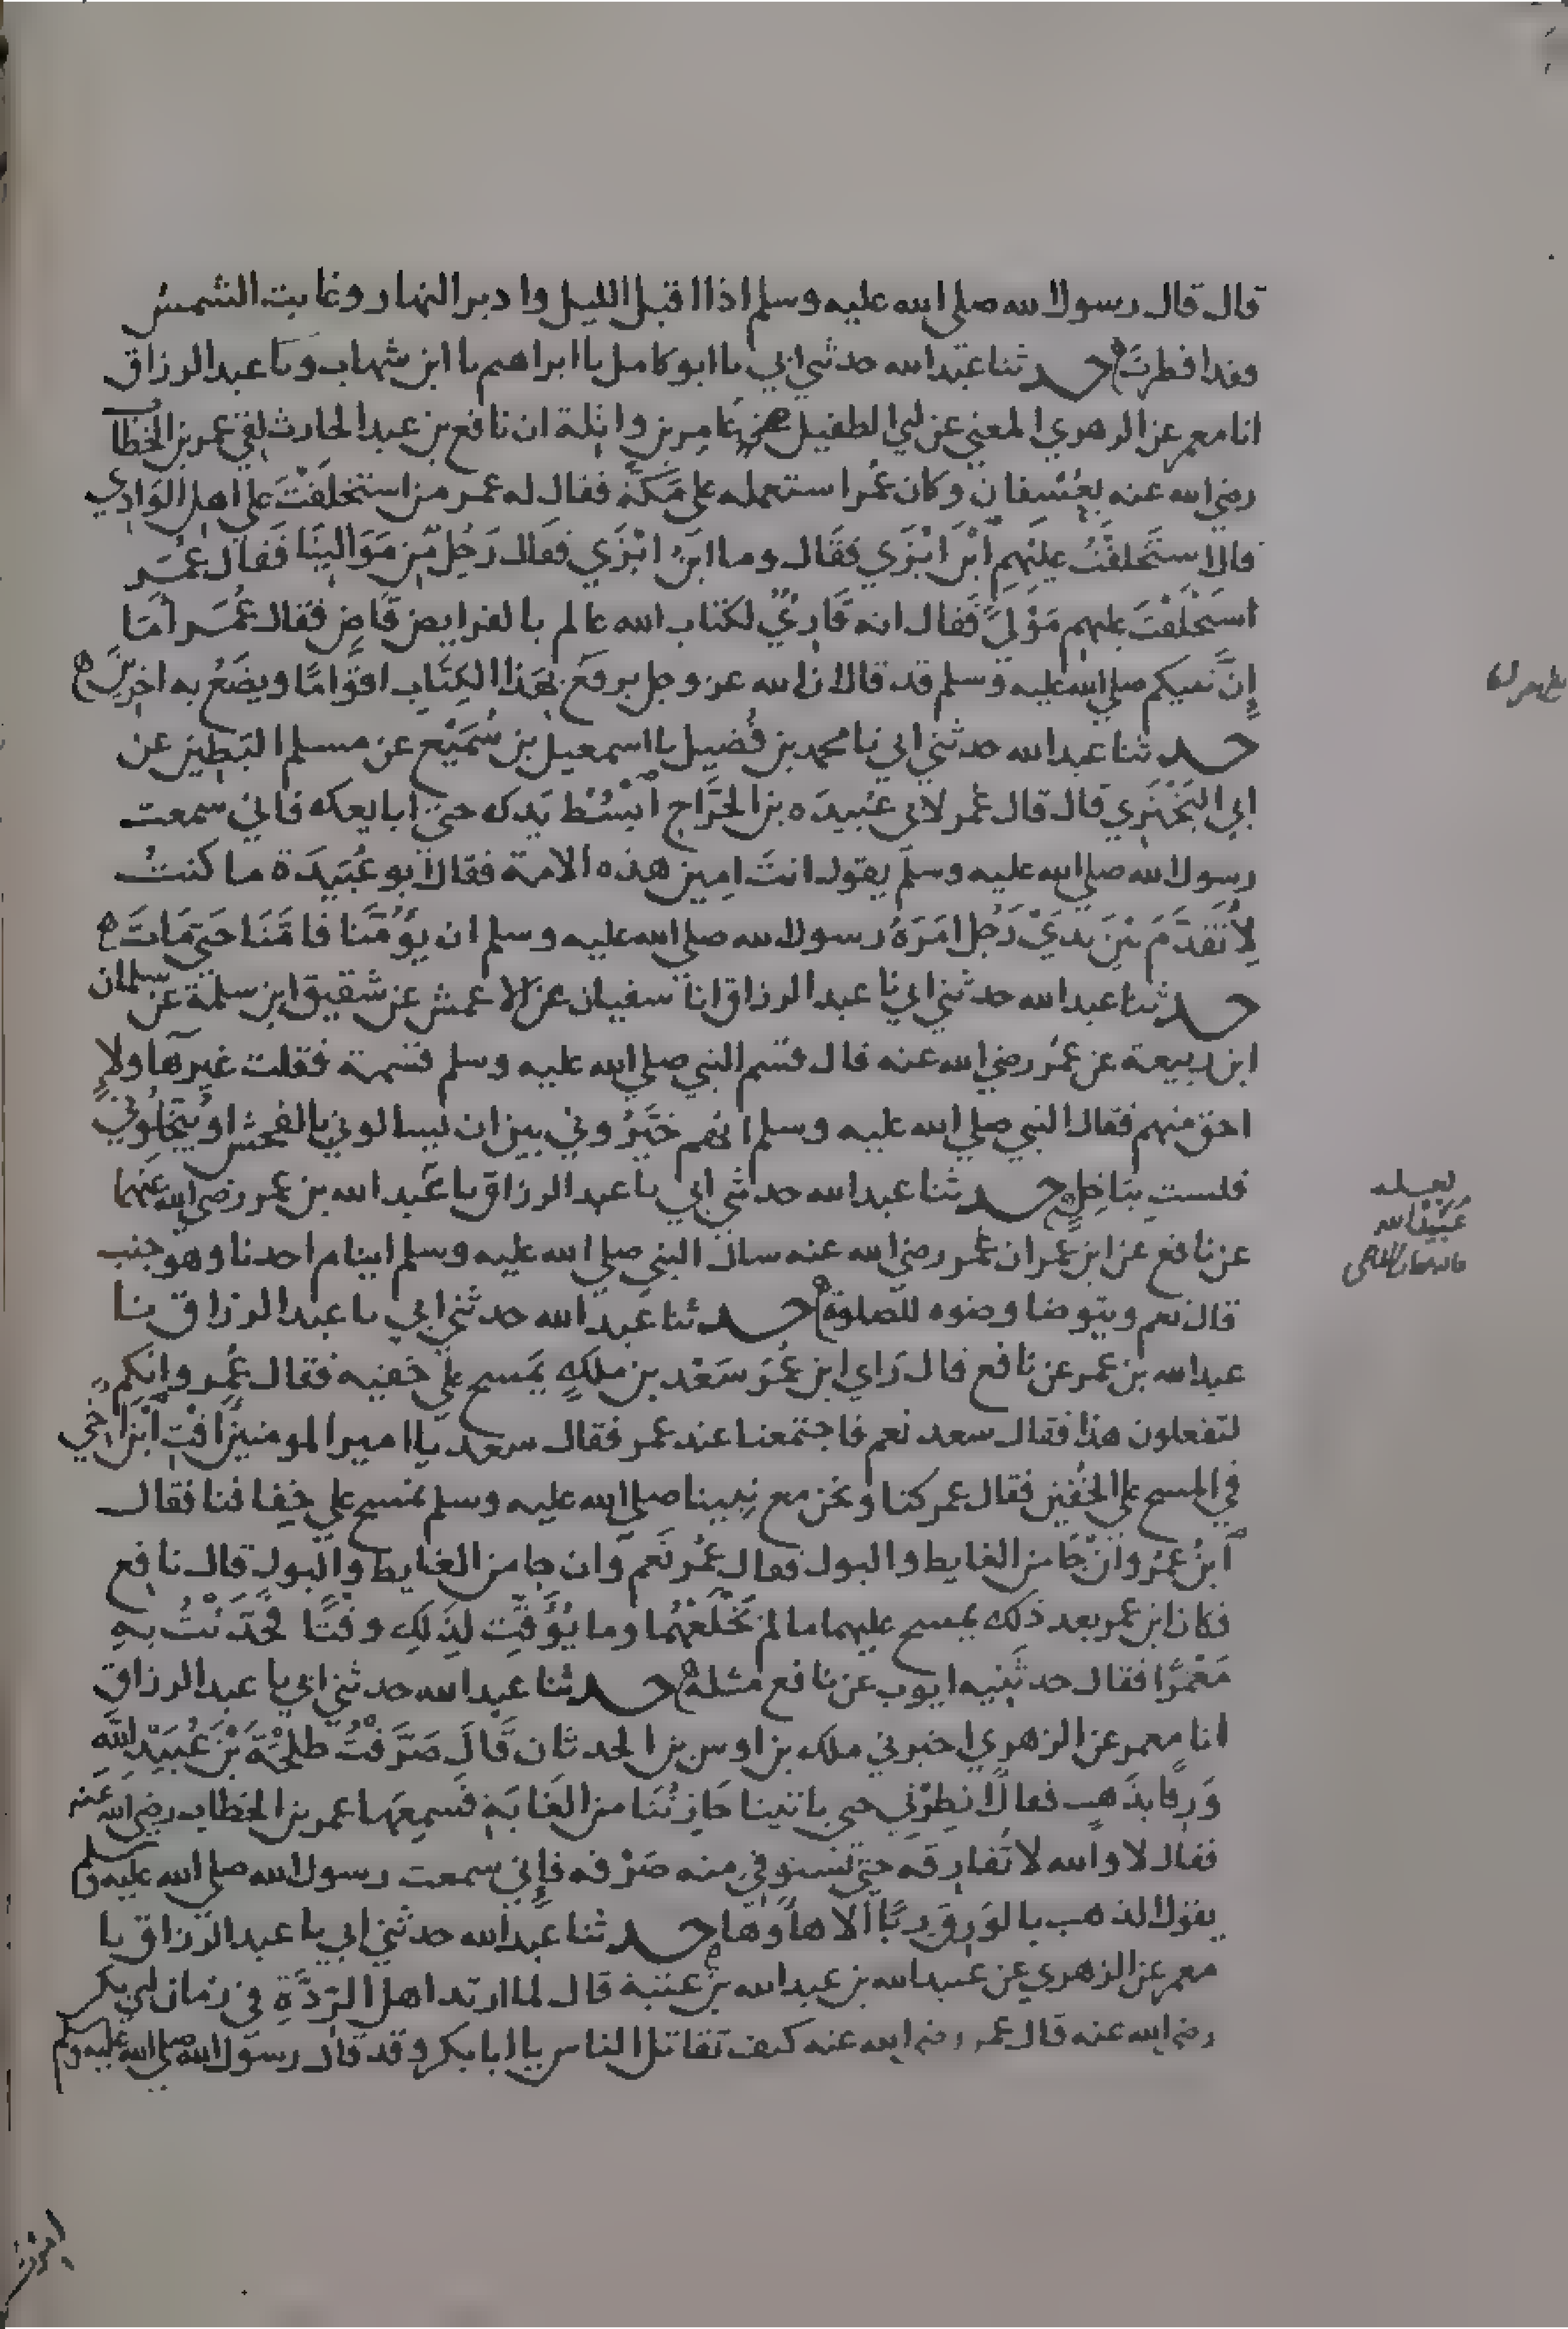 قال قال رسول الله صلى الله عليه وسلم اذا اقبل الليل وادبر النهار وغابت الشمس
فقد افطرت حدثنا عبد الله حدثني ابي نا ابو كامل نا ابراهيم نا ابن شهاب ونا عبد الرزاق
انا معمر عن الزهري المعني عن ابي الطفيل عامر بن واثلة ان نافع بن عبد الحارث لقي عمر بن الخطاب
رضي الله عنه بعُسْفان وكان عُمر استعمله على مَكّة فقال له عمر من استخلفْتَ على اهل الوَادِي
قال استَخلفْتُ عليهِم ابْن ابْزَي فقال وما ابنُ ابْزَي فقال رَجُل مِّن مَوَالينَا فقال عُمَر
استَخْلَفْتَ عليهم مَوْلىً فقال انه قَارِئٌ لكتاب الله عالم بالفرايض قَاضٍ فقال عُمَر أمَا
إنَّ نبيكم صلى الله عليه وسلم قد قال ان الله عز وجل يرفَعُ بهَذا الكِتَابِ اقوَامًا ويضَعُ به اخرِينَ
حدثنا عبد الله حدثني ابي نا محمد بن فُضيل نا اسمعيل بن سُمَيْع عن مسلم البَطِين عن
ابي البَخْتَرِي قال قال عُمر لابي عُبيدَه بن الجرَّاح اُبْسُطْ يَدك حتى ابايعك فاني سمعت
رسول الله صلى الله عليه وسلم يقول انتَ امِين هذه الامة فقال ابو عُبَيدَة ما كنتُ
لِأتَقدَّمَ بَيْنَ يَدَيْ رَجُل امَرَهُ رسول الله صلى الله عليه وسلم ان يَؤُمَّنا فامَّنَا حَتى مَاتَ
حدثنا عبد الله حدثني ابي نا عبد الرزاق انا سفيان عن الاعمش عن شقيق ابن سلمة عن سلمان
ابن ربيعة عن عمُر رضي الله عنه قال قسَم النبي صلى الله عليه وسلم قسْمة فقلت غيرُهَاولا
احق منهم فقال النبي صلى الله عليه وسلم انهم خَيَّرُوني بين ان يَسالوني بالفحش او يُبَخِّلُونِي
فلستُ بِبَاخِلٍ حدثنا عبد الله حدثني ابي نا عبد الرزاق نا عَبد الله بن عمر رضي الله عنهما
عن نافع عن ابن عُمر ان عُمر رضي الله عنه سال النبي صلى الله عليه وسلم اينام احدنا وهو جنب
قال نعم ويتوضا وضوه للصلوة حدثنا عبد الله حدثني ابي نا عبد الرزاق نا
عبد الله بن عمر عن نافع قال رَاي ابن عُمَر سَعْد بن ملكٍ يَمسح على خفيه فقال عُمر وإنكم
لتفعلون هذا فقال سعد نعم فاجتمعنا عند عمر فقال سعد يا امير المومنين افْتِ ابْن اخي
في المسح على الخُفّين فقال عمر كنا ونحن مع نبينا صلى الله عليه وسلم نمسح على خِفافنا فقال
اُبنُ عمُر وانْ جَا من الغايط والبول فقال عمُر نَعم وان جا من الغايط والبول قال نافع
فكان ابن عمر بعد ذلك يمسح عليهما ما لم يَخْلَعْهُما وما يُؤَقِّت لِذَلِك وقتًا فحَدَّثْتُ بهِ
مَعْمرًا فقال حدثَنِيه ايوب عن نافع مثله حدثنا عبد الله حدثني ابي نا عبد الرزاق
انا معمر عن الزهري اخبرني ملك بن اوس بن الحدثان قَالَ صَرَّفْتُ طلحَة بْن عُبَيْد الله
وَرِقًا بذَهب فقال انظِرْني حتى ياتينا خَازِنُنَا من الغَابَة فَسمِعَهَا عمر بن الخطاب رضي الله عنه
فقال لا والله لا تُفارِقَه حتى تَسْتوفي منه صَرْفه فإني سمعت رسول الله صلى الله عليه وسلم
يقول الذهب بالوَرِقِ رِبًا الا هَا وهَا حدثنا عبد الله حدثني ابي نا عبد الرزاق نا
معمر عن الزهري عن عبيد الله بن عبد الله بن عتبة قال لما ارتد اهل الرِّدَّةِ في زمان ابي بكر
رضي الله عنه قال عمر رضي الله عنه كيف تقاتل الناس يا ابا بكر وقد قال رسول الله صلى الله عليه وسلم
لعله
عُبَيْدُ الله